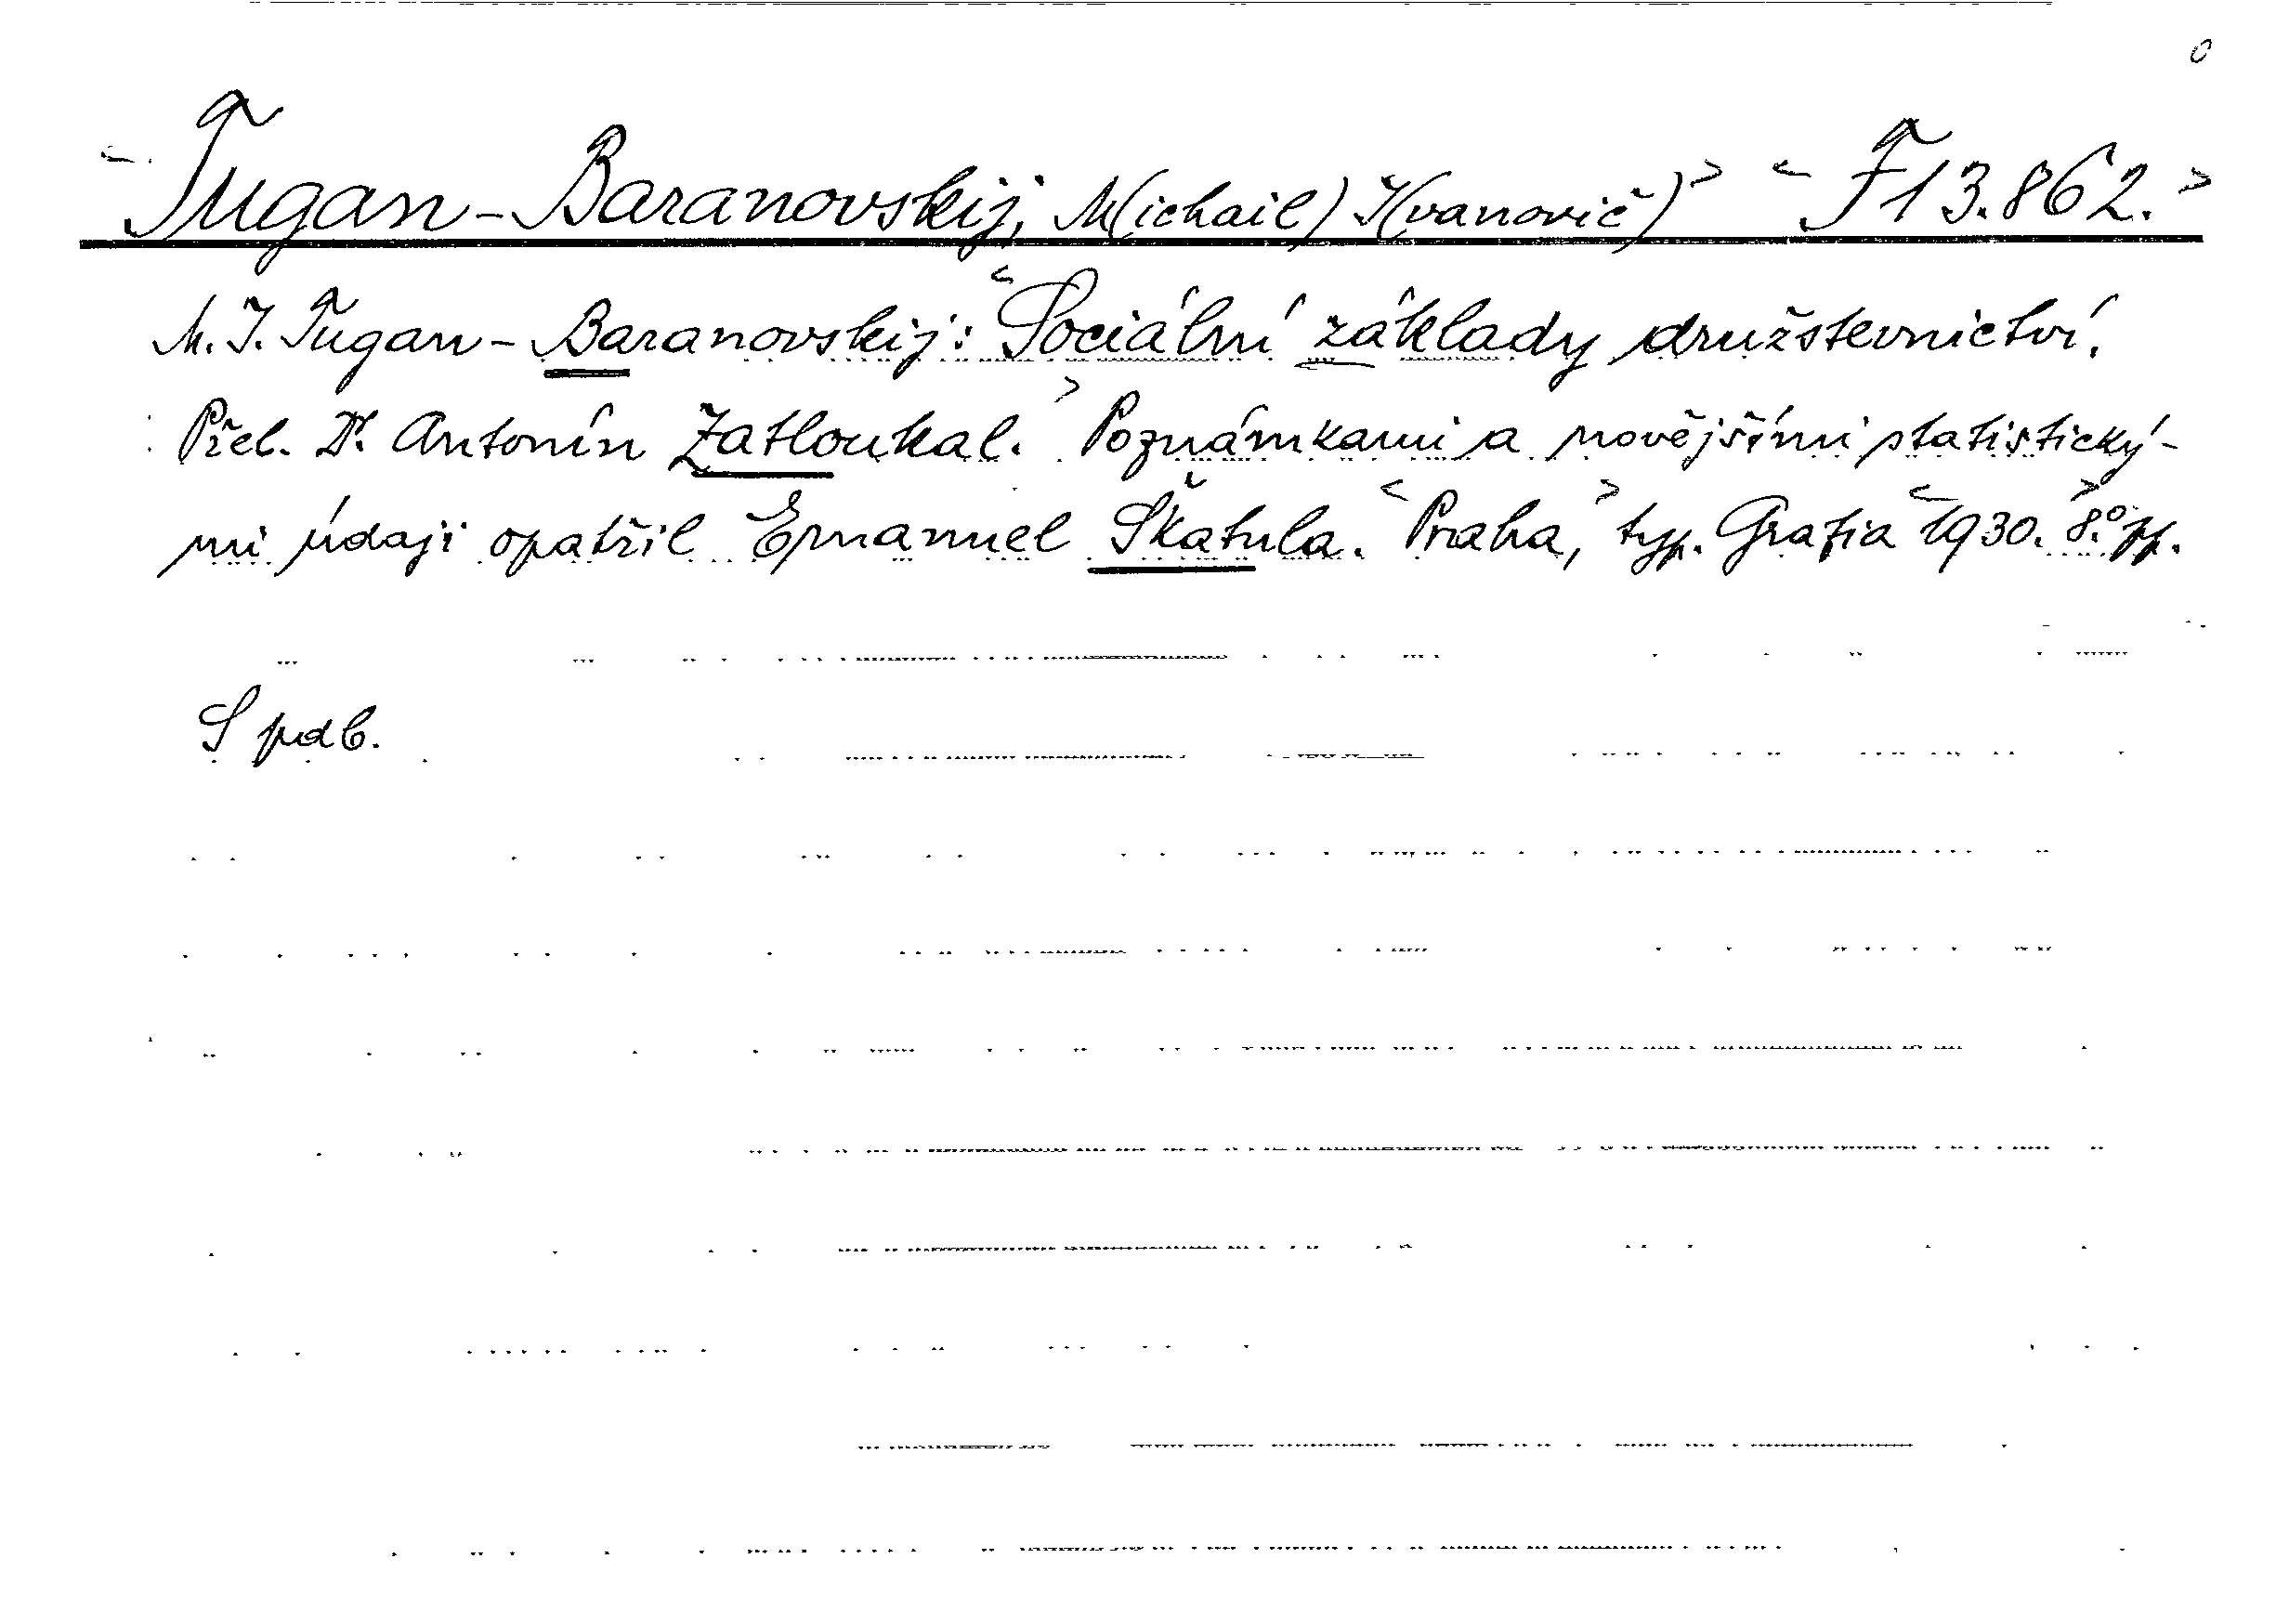 <Tugan-Baranovskij, M(ichail) I(vanovič)> <F13.862.>
M. I. Tugan-Baranovskij: <Sociální základy družstevnictví.
Přel. Dr. Antonín Zatloukal.> Poznámkami a novějšími statistický-
mi údaji opatřil Emanuel Škatula. <Praha,> typ. Grafia <1930. 8.°> pp.
S pdb.